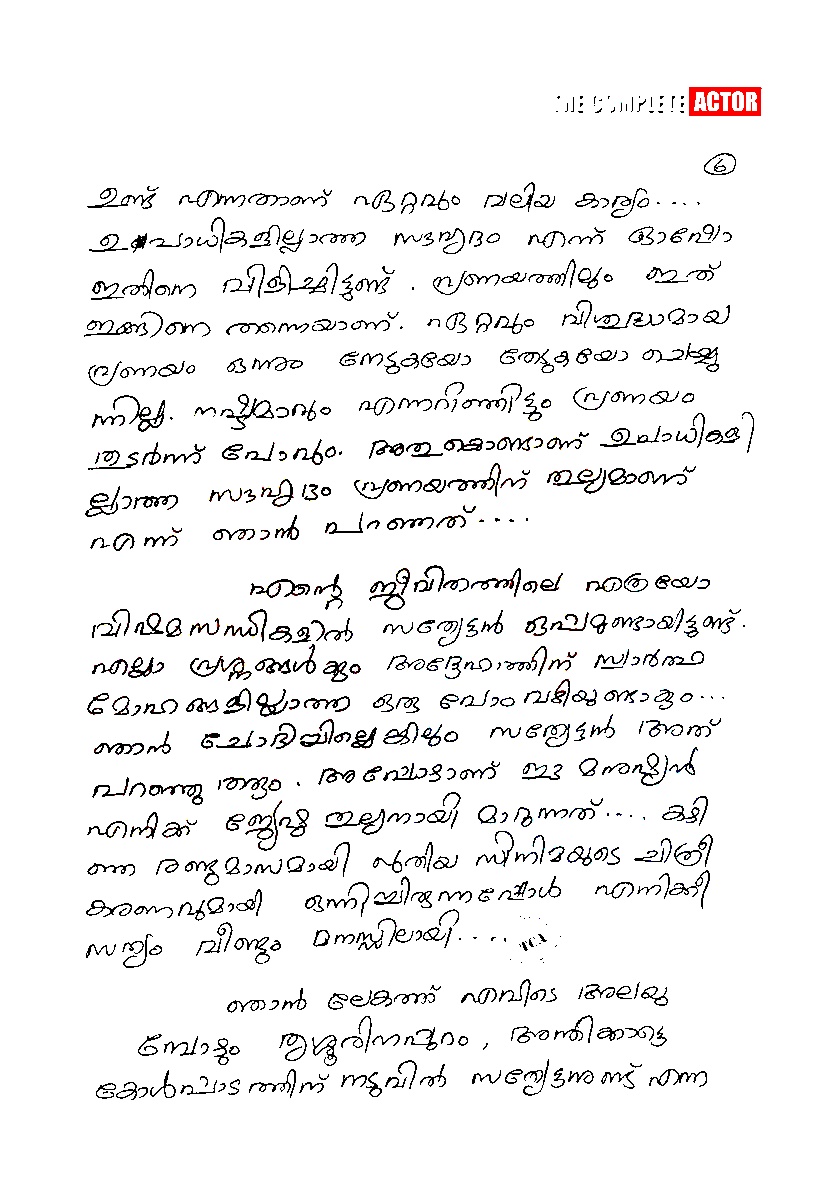 THE COMPLETE ACTOR
6
ഉണ്ട് എന്നതാണ് ഏറ്റവും വലിയ കാര്യം....
ഉപാധികളില്ലാത്ത സൗഹൃദം എന്ന് ഓഷോ
ഇതിനെ വിളിച്ചിട്ടുണ്ട്. പ്രണയത്തിലും ഇത്
ഇങ്ങിനെ തന്നെയാണ്. ഏറ്റവും വിശുദ്ധമായ
പ്രണയം ഒന്നും നേടുകയോ തേടുകയോ ചെയ്യു
ന്നില്ല. നഷ്ടമാവും എന്നറിഞ്ഞിട്ടും പ്രണയം
തുടർന്ന് പോവും. അതുകൊണ്ടാണ് ഉപാധികളി
ല്ലാത്ത സൗഹൃദം പ്രണയത്തിന് തുല്യമാണ്
എന്ന് ഞാൻ പറഞ്ഞത്....
എന്റെ ജീവിതത്തിലെ എത്രയോ
വിഷമസന്ധികളിൽ സത്യേട്ടൻ ഒപ്പമുണ്ടായിട്ടുണ്ട്.
എല്ലാ പ്രശ്നങ്ങൾക്കും അദ്ദേഹത്തിന് സ്വാർത്ഥ
മോഹങ്ങളില്ലാത്ത ഒരു പോംവഴിയുണ്ടാകും...
ഞാൻ ചോദിച്ചില്ലെങ്കിലും സത്യേട്ടൻ അത്
പറഞ്ഞു തരും. അപ്പോളാണ് ഈ മനുഷ്യൻ
എനിക്ക് ജ്യേഷ്ഠതുല്യനായി മാറുന്നത്.... കഴി
ഞ്ഞ രണ്ടുമാസമായി പുതിയ സിനിമയുടെ ചിത്രീ
കരണവുമായി ഒന്നിച്ചിരുന്നപ്പോൾ എനിക്കീ
സത്യം വീണ്ടും മനസ്സിലായി.....
TCA
ഞാൻ ലോകത്ത് എവിടെ അലയു
മ്പോളും തൃശ്ശൂരിനപ്പുറം, അന്തിക്കാട്ടെ
കോൾപാടത്തിന് നടുവിൽ സത്യേട്ടനുണ്ട് എന്ന